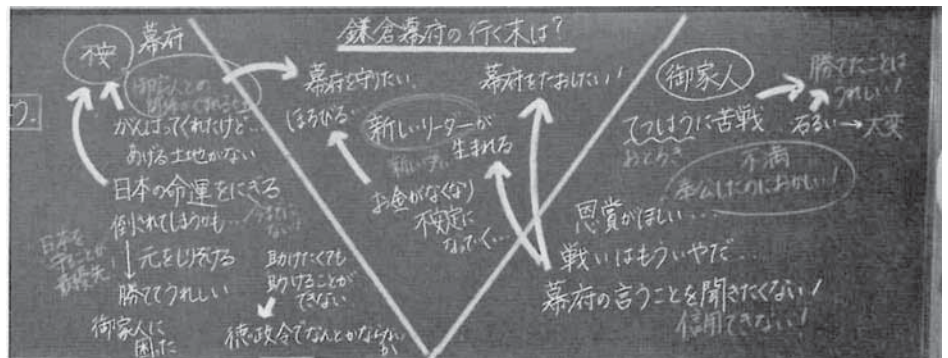 鎌倉幕府の行く末は?
不安
幕府
御家人との
がんばってくれたけど…
あげる土地がない
日本の命運をにぎる
倒されてしまうかも…
日本を
守ることが
最優先!
元をしりぞける
勝ててうれしい
御家人に
困った
助けたくても
助けることが
できない
徳政令でなんとかならないか
幕府を守りたい
ほろびる…
新しいリーダーが
生まれる
お金がなくなり
不安定に
なっていく…
幕府をたおしたい!
御家人
てつはうに苦戦
おどろき
勝てたことは
うれしい!
石るい→大変
不満
奉公したのにおかしい!
恩賞がほしい…
戦いはもういやだ…
幕府の言うことを聞きたくない!
信用できない!